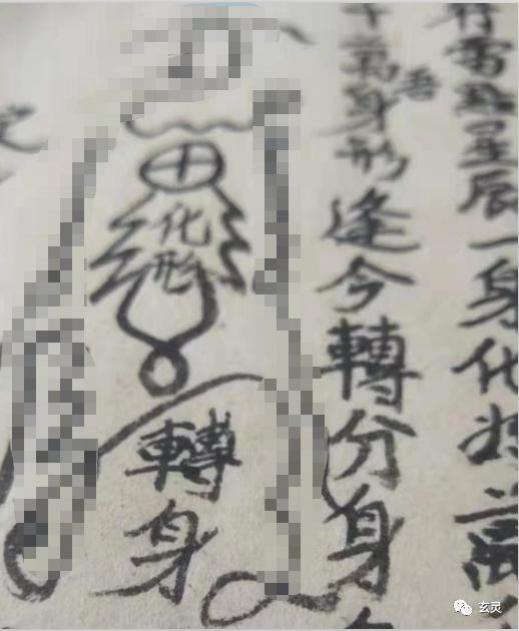 雷星辰一身化萬
萬身形吾逢今轉分身
化形
轉身
玄灵